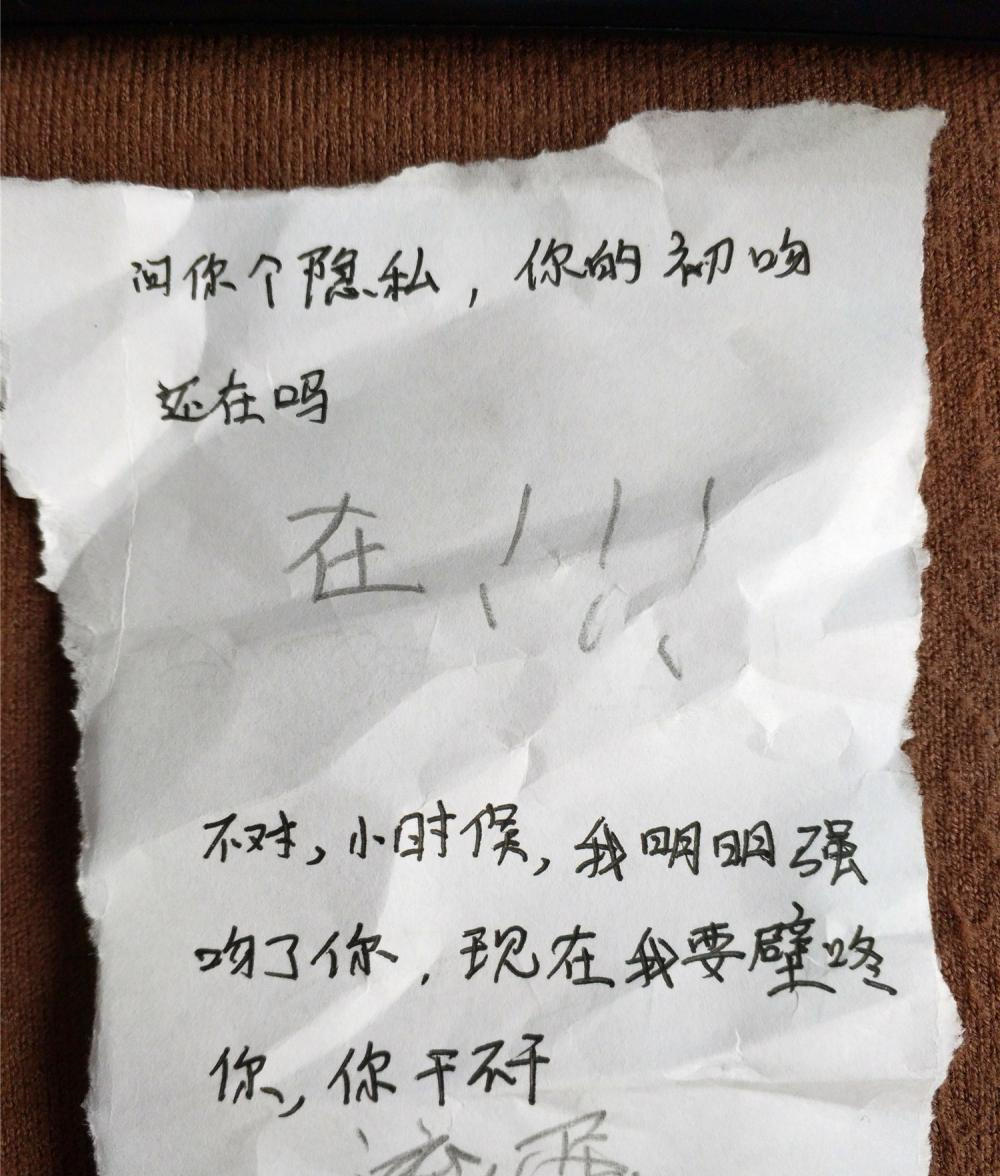 问你个隐私，你的初吻
还在吗
在！！！
不对，小时候，我明明强
吻了你，现在我要壁咚
你，你干不干